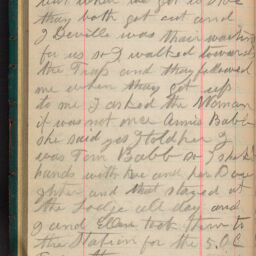 they both got out and
J Deville was their waiting
for us so I walked towards
the Traps and they followed
me when they got up
to me I asked the Woman
it was not once Annie Babb
she said yes I told her I
was Tom Babb so I shook
hands with her and her
and that stayed at
the Lodge all day and
I and Ellen took them to
the Station for the 5.0C